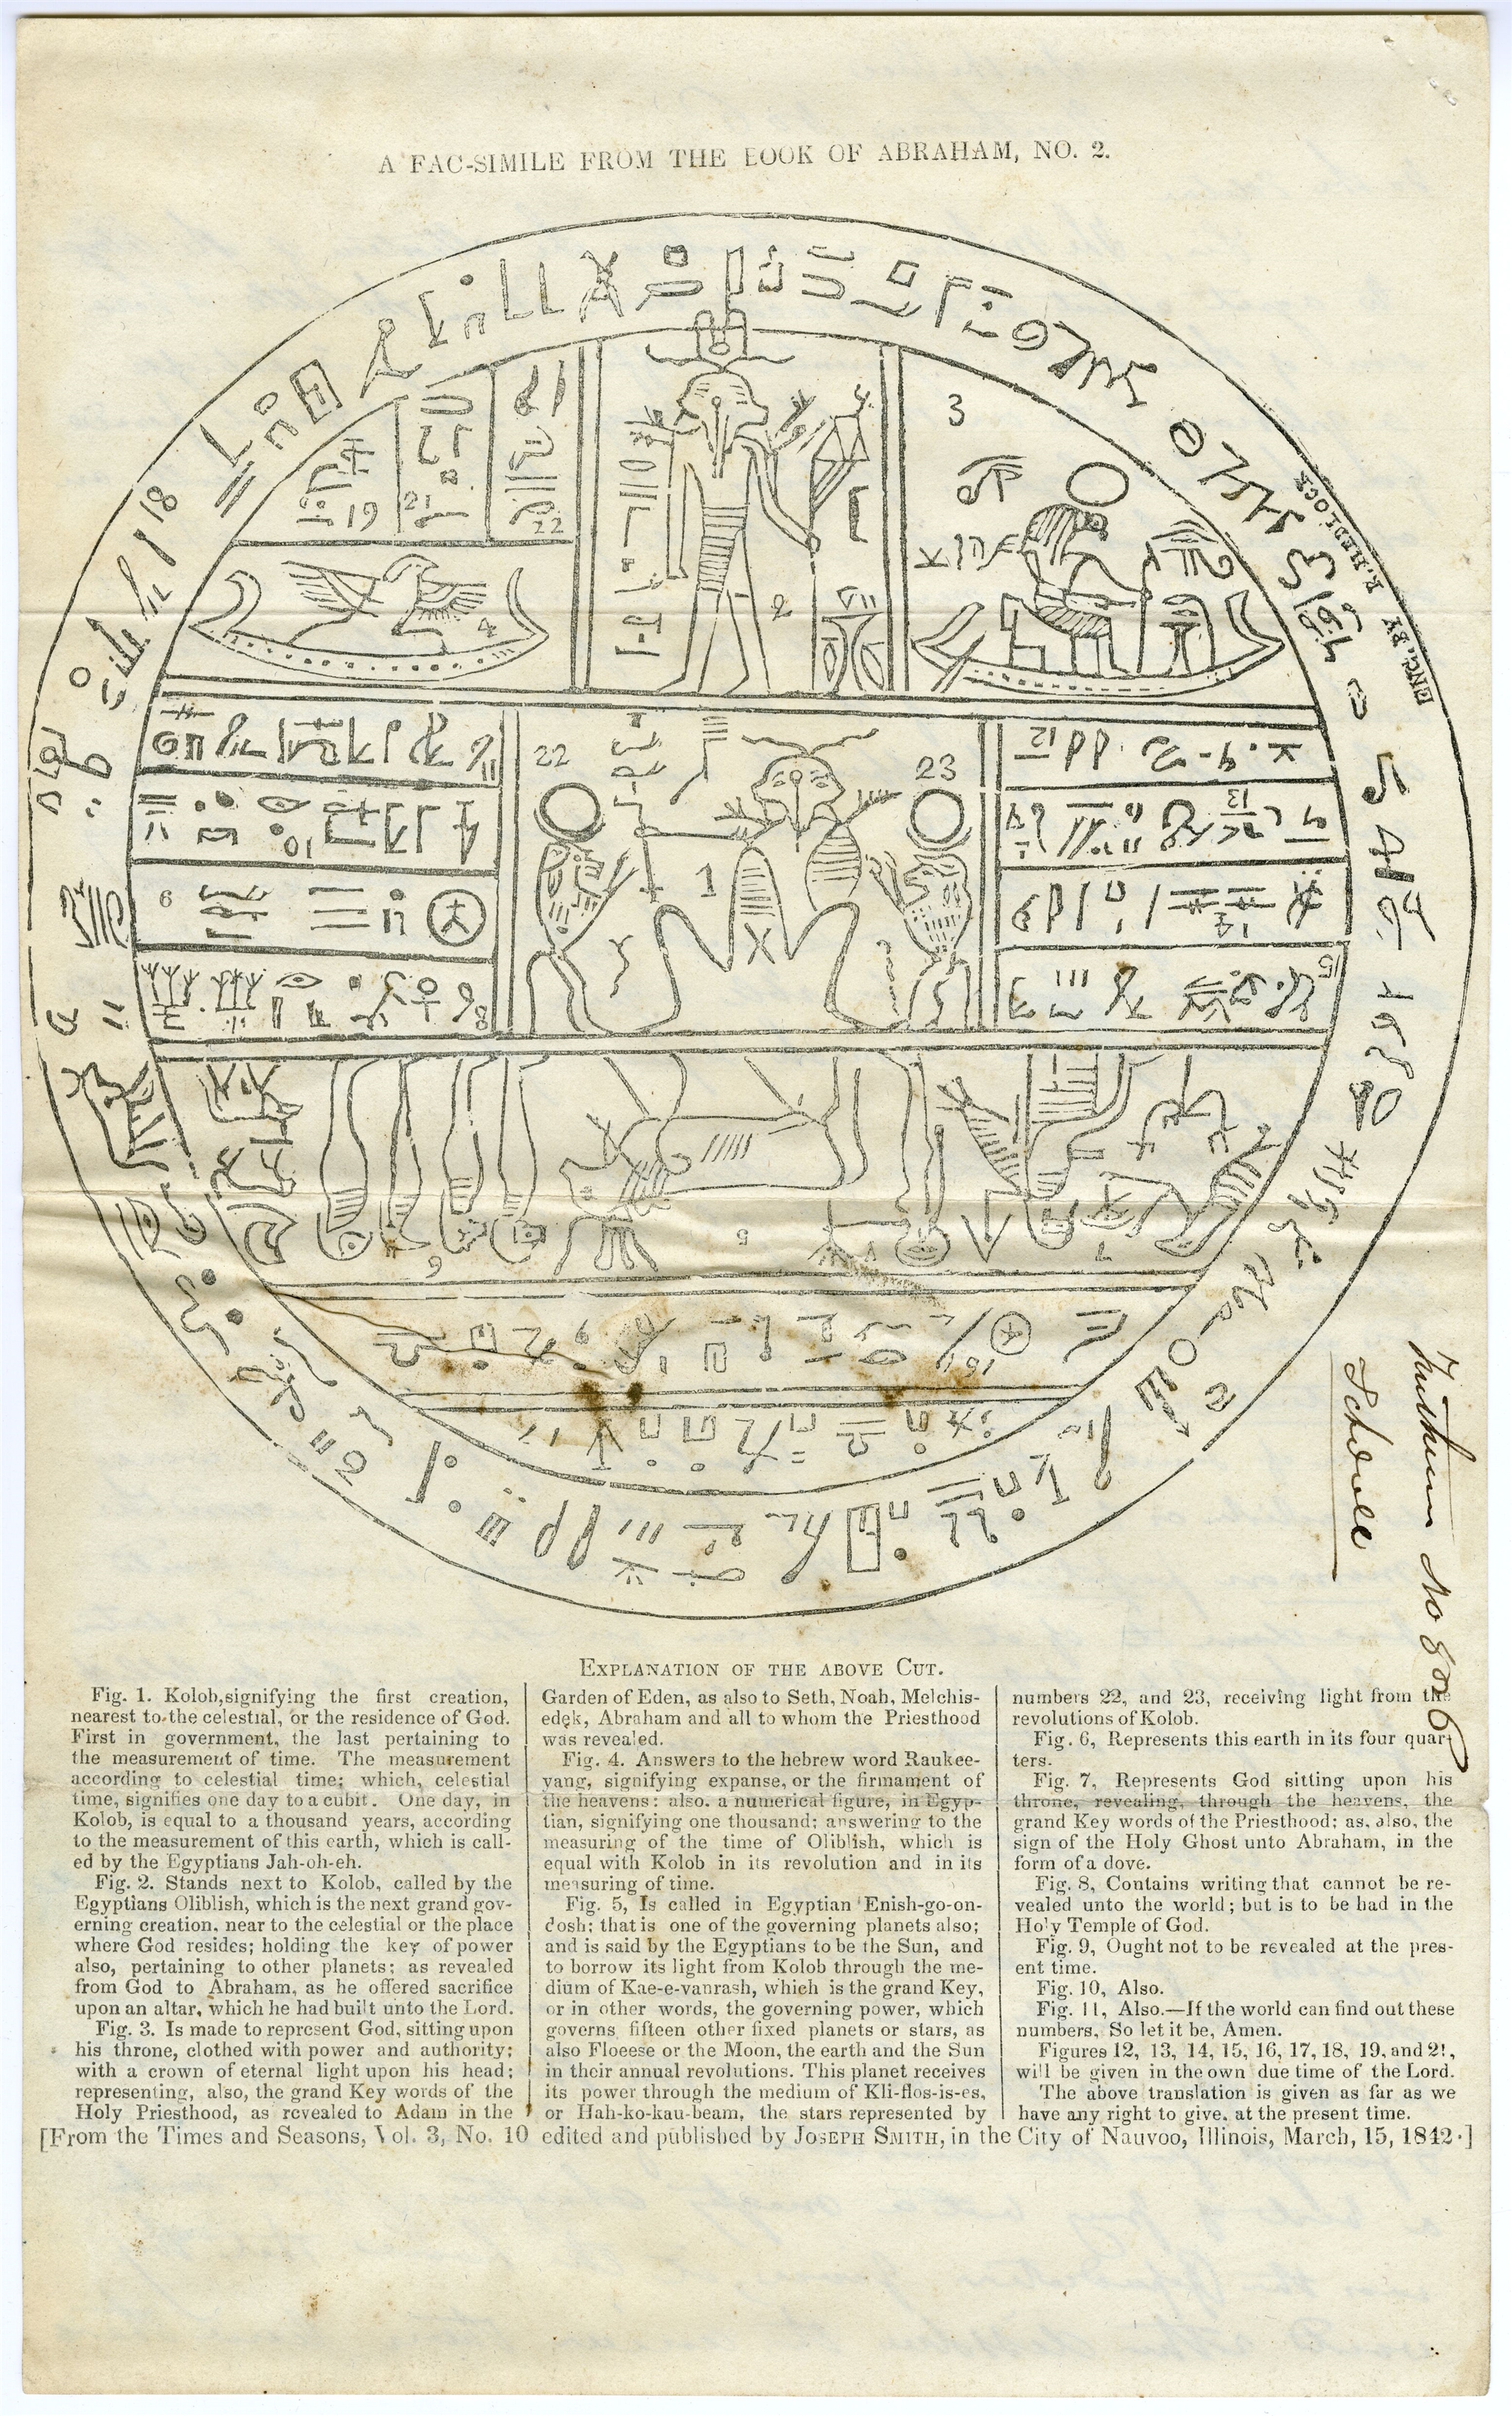 A FAC-SIMILE FROM THE BOOK OF ABRAHAM, NO. 2.
ENG. BY R. HEDLOCK
3
18
19
21
22
2
4
22
23
1
12
13
10
6
14
15
8
5
7
6
17
No 806
EXPLANATION OF THE ABOVE CUT.
Fig. 1. Kolob,signifying the first creation,
nearest to the celestial, or the residence of God.
First in government, the last pertaining to
the measurement of time. The measurement
according to celestial time; which, celestial
time, signifies one day to a cubit. One day, in
Kolob, is equal to a thousand years, according
to the measurement of this earth, which is call-
ed by the Egyptians Jah-oh-eh.
Fig. 2. Stands next to Kolob, called by the
Egyptians Oliblish, which is the next grand gov-
erning creation, near to the celestial or the place
where God resides; holding the key of power
also, pertaining to other planets; as revealed
from God to Abraham, as he offered sacrifice
upon an altar, which he had built unto the Lord.
Fig. 3. Is made to represent God, sitting upon
his throne, clothed with power and authority;
with a crown of eternal light upon his head;
representing, also, the grand Key words of the
Holy Priesthood, as revealed to Adam in the
Garden of Eden, as also to Seth, Noah, Melchis-
edek, Abraham and all to whom the Priesthood
was revealed.
Fig. 4. Answers to the hebrew word Raukee-
yang, signifying expanse, or the firmament of
the heavens: also. a numerical figure, in Egyp-
tian, signifying one thousand; answering to the
measuring of the time of Oliblish, which is
equal with Kolob in its revolution and in its
measuring of time.
Fig. 5, Is called in Egyptian Enish-go-on-
dosh; that is one of the governing planets also;
and is said by the Egyptians to be the Sun, and
to borrow its light from Kolob through the me-
dium of Kae-e-vanrash, which is the grand Key,
or in other words, the governing power, which
governs fifteen other fixed planets or stars, as
also Floeese or the Moon, the earth and the Sun
in their annual revolutions. This planet receives
its power through the medium of Kli-flos-is-es,
or Hah-ko-kau-beam, the stars represented by
numbers 22, and 23, receiving light from the
revolutions of Kolob.
Fig. 6, Represents this earth in its four quar-
ters.
Fig. 7, Represents God sitting upon his
throne, revealing, through the heavens, the
grand Key words of the Priesthood; as, also, the
sign of the Holy Ghost unto Abraham, in the
form of a dove.
Fig. 8, Contains writing that cannot be re-
vealed unto the world; but is to be had in the
Holy Temple of God.
Fig. 9, Ought not to be revealed at the pres-
ent time.
Fig. 10, Also.
Fig. 11, Also.—If the world can find out these
numbers, So let it be, Amen.
Figures 12, 13, 14, 15, 16, 17, 18, 19, and 21,
will be given in the own due time of the Lord.
The above translation is given as far as we
have any right to give, at the present time.
[From the Times and Seasons, Vol. 3, No. 10 edited and published by JOSEPH SMITH, in the City of Nauvoo, Illinois, March, 15, 1842.]